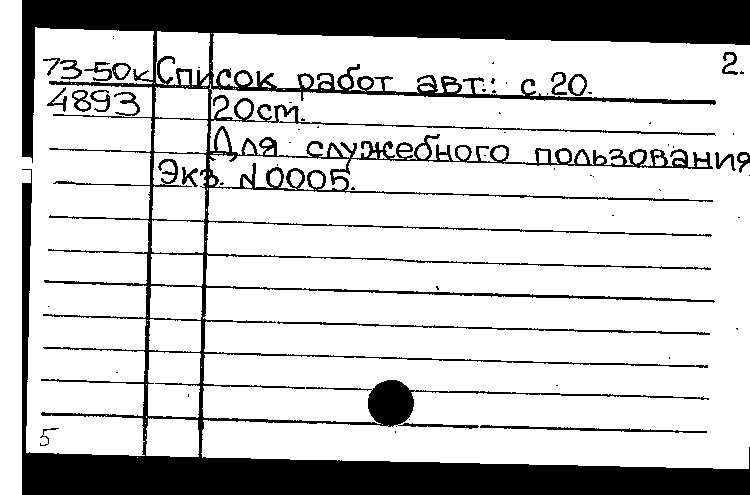 2.
73-50к Список работ авт.: с.20.
4893 20cm.
Для служебного пользования
Экз. N0005.
5